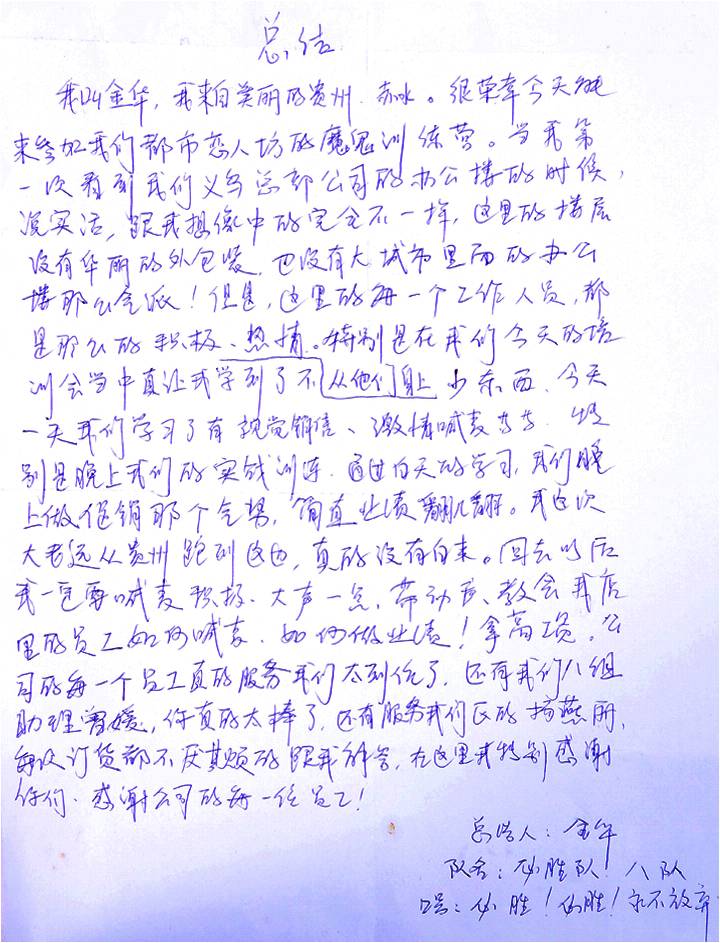 总结
我叫金华,我来自美丽的贵州.赤水。很荣幸今天能
来参加我们都市恋人坊的魔鬼训练营。当我第
一次看到我们义乌总部公司的办公楼的时候,
说实话,跟我想像中的完全不一样,这里的楼层
没有华丽的外包装,也没有大城市里面的办公
楼那么气派!但是,这里的每一个工作人员,都
是那么的积极、热情。特别是在我们今天的培
训会当中真让我学到了不从他们身上少东西、今天
一天我们学习了有视觉销售、激情喊麦等等.特
别是晚上我们的实战训练.通过白天的学习,我们晚
上做促销那个气势,简直业绩翻几翻。我这次
大老远从贵州跑到这边,真的没有白来。回去以后
我一定要喊麦积极.大声一点,带动员、教会我店
里的员工如何喊麦.如何做业绩!拿高工资。公
司的每一个员工真的服务我们太到位了,还有我们八组
助理曾媛,你真的太棒了,还有服务我们区的杨燕丽,
每次订货都不厌其烦的跟我解答,在这里我特别感谢
你们.感谢公司的每一位员工!
总结人:金华
队名:必胜队!八队
口号:必胜!必胜!永不放弃